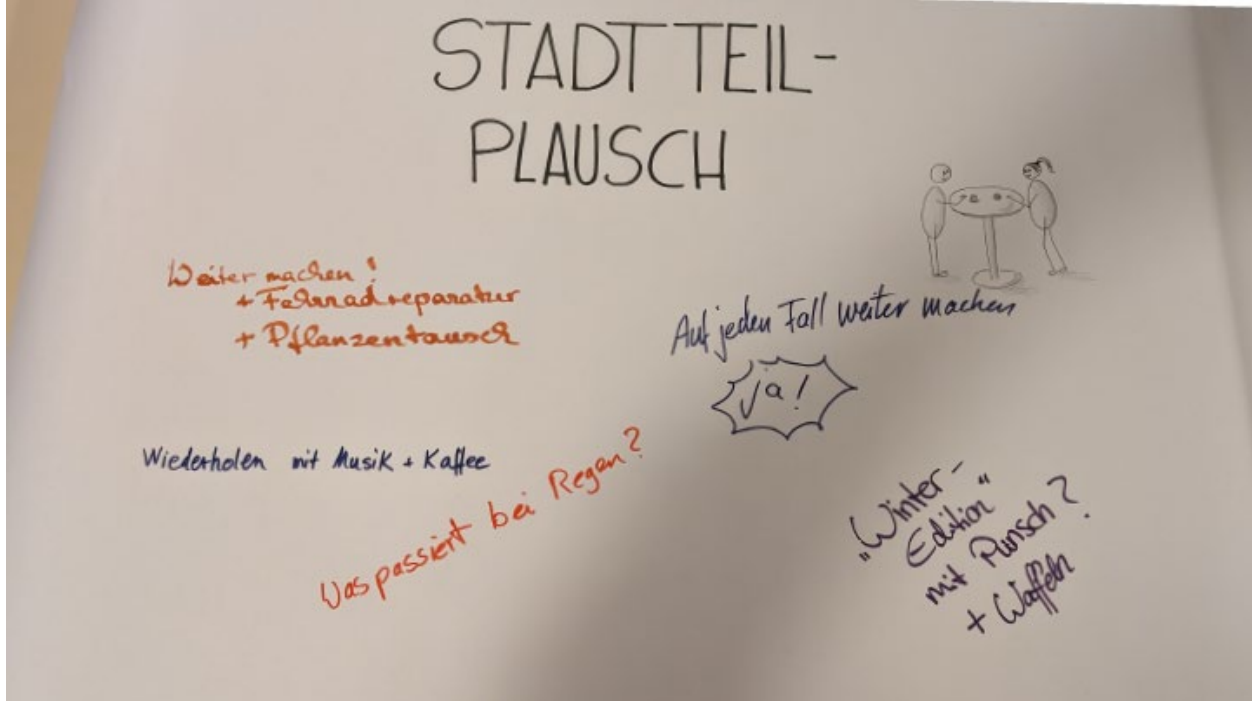 STADTTEIL-
PLAUSCH
Weiter machen!
+ Fahrradreparatur
+ Pflanzentausch
Auf jeden Fall weiter machen
Ja!
Wiederholen mit Musik + Kaffee
Was passiert bei Regen?
„Winter-
Edition“
mit Punsch?
+ Waffeln